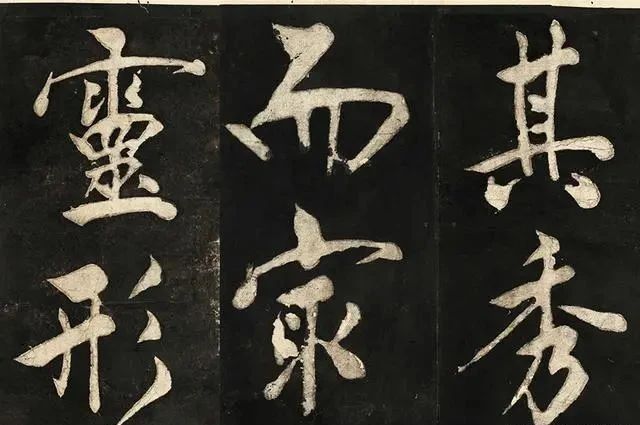 其秀
而㝡
靈形